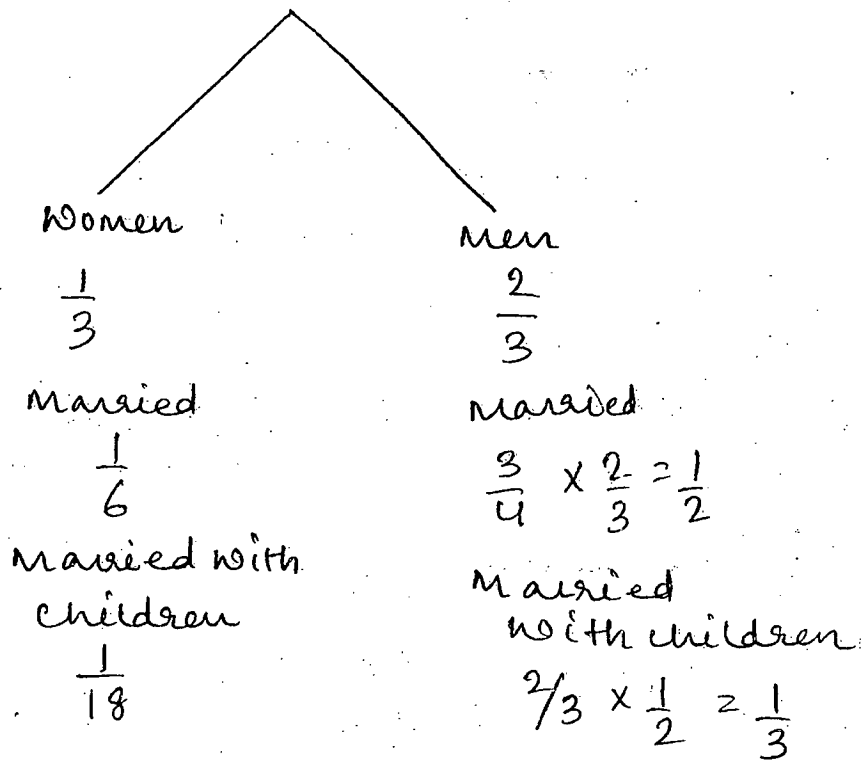 Women
1/3
Married
1/6
Married with
children
1/18
Men
2/3
Married
3/4 x 2/3 = 1/2
Married
with children
2/3 x 1/2 = 1/3